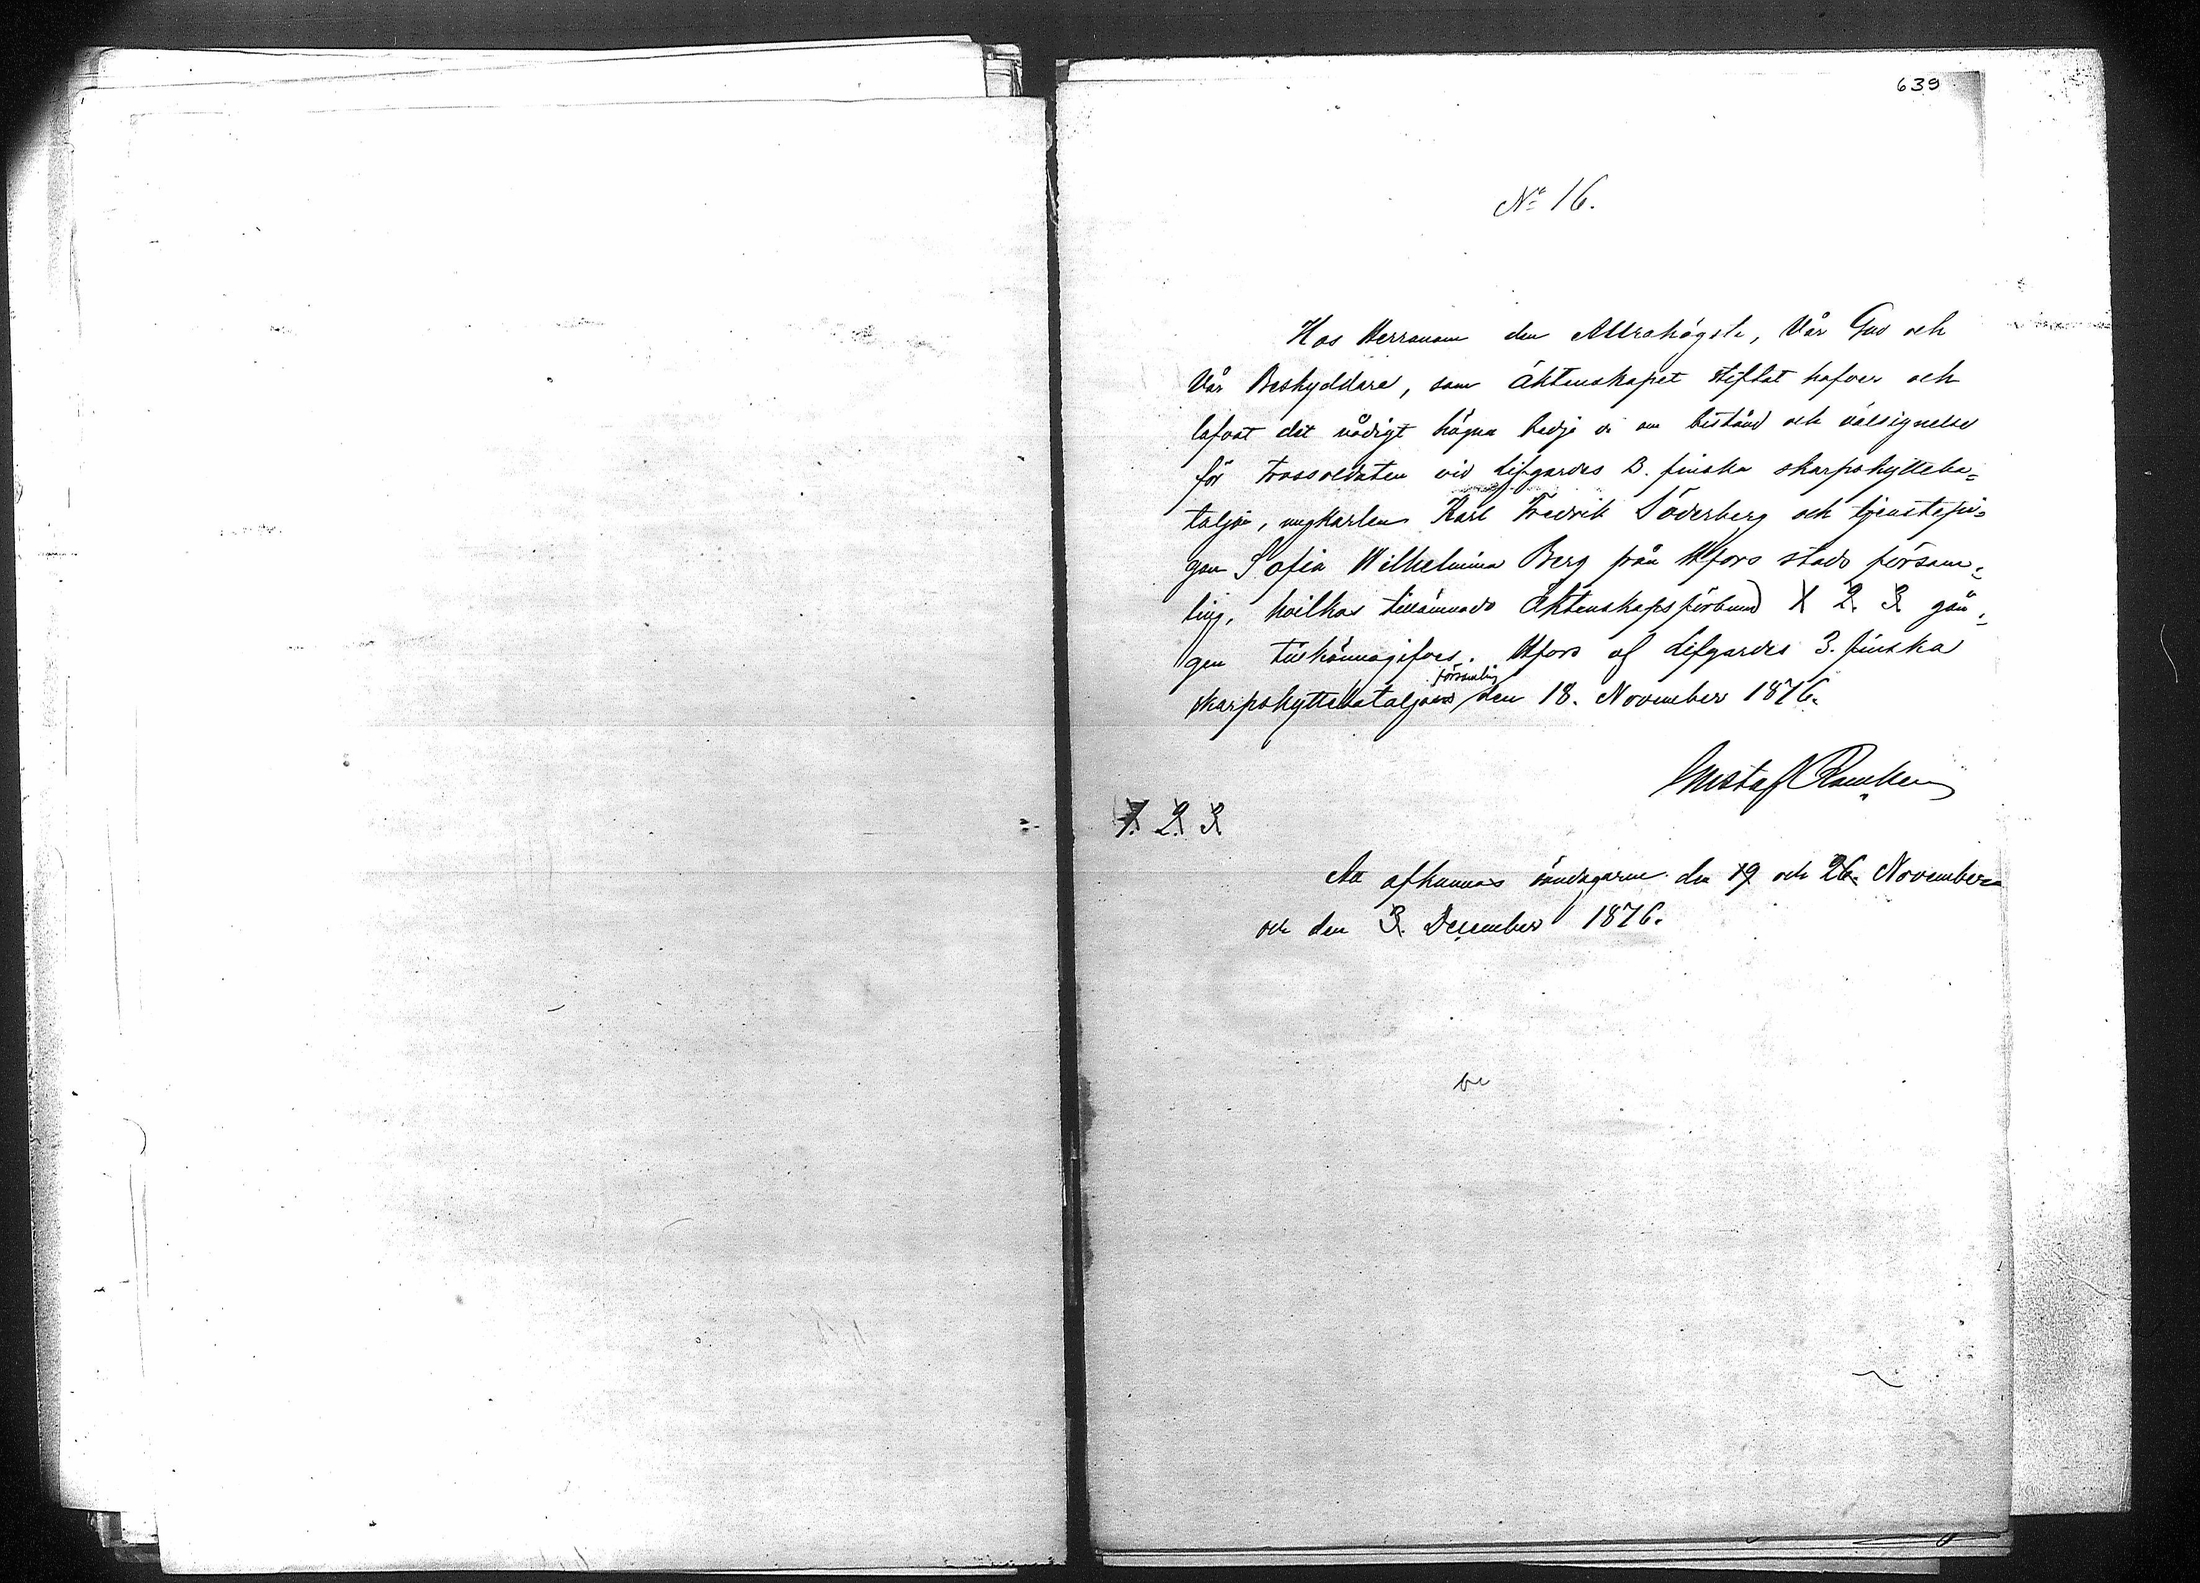 639
No 16.
Hos Herranom den Allrahögste, Vår Gud och
Vår Beskyddare, som Äktenskapet stiftat hafver och
lofvat det nådigt hägna bedje vi om bistånd och välsignelse
för trossoldaten vid Lifgardes 3. finska skarpskytteba=
taljon, ungkarlen Karl Fredrik Söderberg och tjenstepi=
gan Sofia Wilhelmina Berg från Hfors stads försam=
ling, hvilkas tillämnade Äktenskapsförbund 1 2. 3. gån=
gen tillkännagifves. Hfors af Lifgardes 3. finska
skarpskyttebataljons församling den 18. November 1876.
Gustaf
1. 2. 3
Att afkunnas söndagarne den 19 och 26. November
och den 3. December 1876.